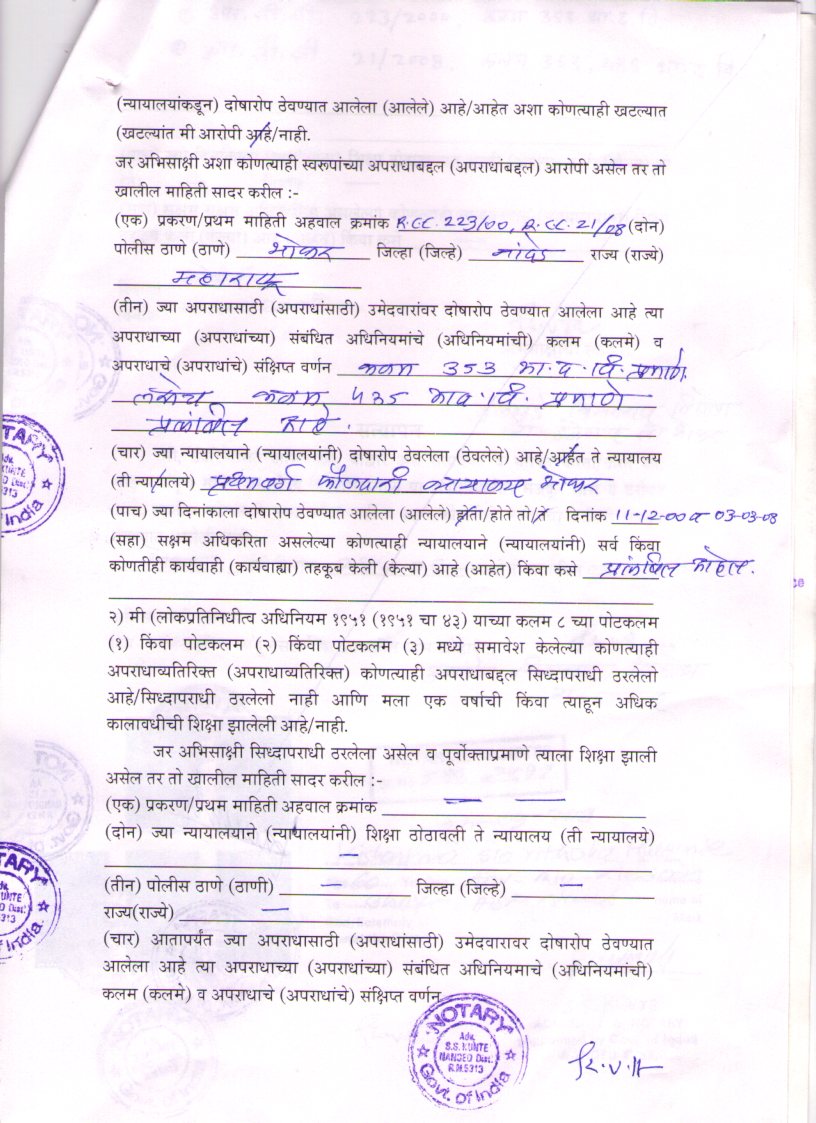 (न्यायालयांकडून) दोषारोप ठेवण्यात आलेला (आलेले) आहे/आहेत अशा कोणत्याही खटल्यात
(खटल्यांत मी आरोपी आहे/नाही.
जर अभिसाक्षी अशा कोणत्याही स्वरूपांच्या अपराधाबद्दल (अपराधांबद्दल) आरोपी असेल तर तो
खालील माहिती सादर करील :-
(एक) प्रकरण/प्रथम माहिती अहवाल क्रमांक R.CC. 223/00, R.CC. 21/08 (दोन)
पोलीस ठाणे (ठाणे) भोकर जिल्हा (जिल्हे) नांदेड राज्य (राज्ये)
महाराष्ट्र
(तीन) ज्या अपराधासाठी (अपराधांसाठी) उमेदवारांवर दोषारोप ठेवण्यात आलेला आहे त्या
अपराधाच्या (अपराधांच्या) संबंधित अधिनियमांचे (अधिनियमांची) कलम (कलमे) व
अपराधाचे (अपराधांचे) संक्षिप्त वर्णन कलम 353 भा.द.वि. प्रमाणे
तसेच कलम 435 भादवि. प्रमाणे
प्रलंबित आहे.
(चार) ज्या न्यायालयाने (न्यायालयांनी) दोषारोप ठेवलेला (ठेवलेले) आहे/आहेत ते न्यायालय
(ती न्यायालये) प्रथमवर्ग फौजदारी न्यायालय भोकर
(पाच) ज्या दिनांकाला दोषारोप ठेवण्यात आलेला (आलेले) होता/होते तो/ते दिनांक 11-12-00 व 03-03-08
(सहा) सक्षम अधिकरिता असलेल्या कोणत्याही न्यायालयाने (न्यायालयांनी) सर्व किंवा
कोणतीही कार्यवाही (कार्यवाह्या) तहकूब केली (केल्या) आहे (आहेत) किंवा कसे प्रलंबित आहेत.
२) मी (लोकप्रतिनिधीत्व अधिनियम १९५१ (१९५१ चा ४३) याच्या कलम ८ च्या पोटकलम
(१) किंवा पोटकलम (२) किंवा पोटकलम (३) मध्ये समावेश केलेल्या कोणत्याही
अपराधाव्यतिरिक्त (अपराधाव्यतिरिक्त) कोणत्याही अपराधाबद्दल सिध्दापराधी ठरलेलो
आहे/सिध्दापराधी ठरलेलो नाही आणि मला एक वर्षाची किंवा त्याहून अधिक
कालावधीची शिक्षा झालेली आहे/नाही.
जर अभिसाक्षी सिध्दापराधी ठरलेला असेल व पूर्वोक्ताप्रमाणे त्याला शिक्षा झाली
असेल तर तो खालील माहिती सादर करील :-
(एक) प्रकरण/प्रथम माहिती अहवाल क्रमांक — —
(दोन) ज्या न्यायालयाने (न्यायालयांनी) शिक्षा ठोठावली ते न्यायालय (ती न्यायालये)
—
(तीन) पोलीस ठाणे (ठाणी) — जिल्हा (जिल्हे) —
राज्य(राज्ये) —
(चार) आतापर्यंत ज्या अपराधासाठी (अपराधांसाठी) उमेदवारावर दोषारोप ठेवण्यात
आलेला आहे त्या अपराधाच्या (अपराधांच्या) संबंधित अधिनियमाचे (अधिनियमांची)
कलम (कलमे) व अपराधाचे (अपराधांचे) संक्षिप्त वर्णन
NOTARY
Adv.
S.S. KUNTE
NANDED Dist.
R.N.5313
Govt. of India